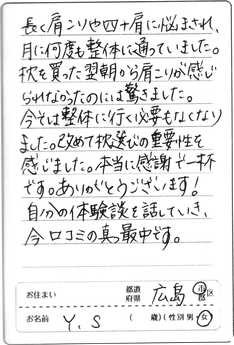 長く肩こりや四十肩に悩まされ、
月に何度も整体に通っていました。
枕を買った翌朝から肩こりが感じ
られなくなったのには驚きました。
今では整体に行く必要もなくなり
ました。改めて枕選びの重要性を
感じました。本当に感謝で一杯
です。ありがとうございます!
自分の体験談を話していき、
今口コミの真っ最中です。
お住まい 都道府県 広島 市郡区
お名前 Y.S ( 歳)(性別 男・女)